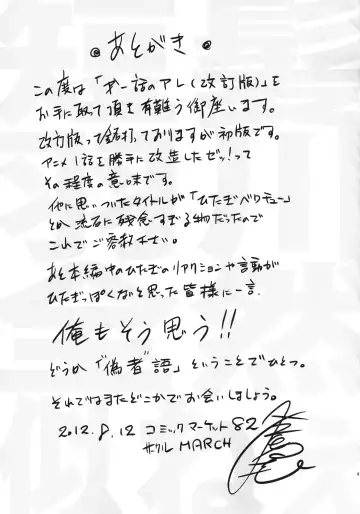 あとがき
この度は「第一話のアレ(改訂版)」を
お手に取って頂き有難う御座います。
改訂版って銘打っておりますが初版です。
アニメ1話を勝手に改造したゼッ!って
その程度の意味です。
他に思いついたタイトルが「ひたぎベリチュー」
とか流石に残念すぎる物だったので
これでご容赦下さい。
あと本編中のひたぎのリアクションや言動が
ひたぎっぽくないと思った皆様に一言。
俺もそう思う!!
どうか“偽者語”ということでひとつ。
それではまたどこかでお会いしましょう。
2012.8.12 コミックマーケット82
サークル MARCH